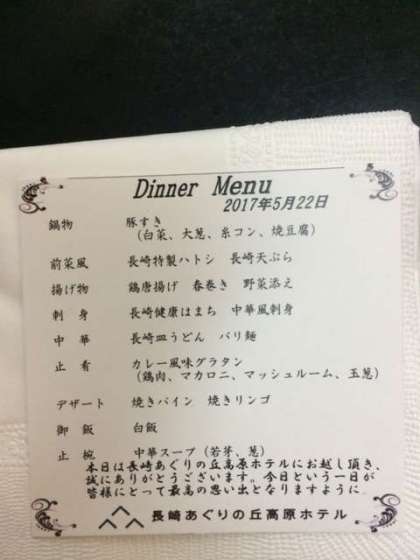 Dinner Menu
2017年5月22日
鍋物 豚すき
(白菜、大葱、糸コン、焼豆腐)
前菜風 長崎特製ハトシ 長崎天ぷら
揚げ物 鶏唐揚げ 春巻き 野菜添え
刺身 長崎健康はまち 中華風刺身
中華 長崎皿うどん バリ麺
止肴 カレー風味グラタン
(鶏肉、マカロニ、マッシュルーム、玉葱)
デザート 焼きパイン 焼きリンゴ
御飯 白飯
止椀 中華スープ(若芽、葱)
本日は長崎あぐりの丘高原ホテルにお越し頂き、
誠にありがとうございます。今日という一日が
皆様にとって最高の思い出となりますように.
長崎あぐりの丘高原ホテル